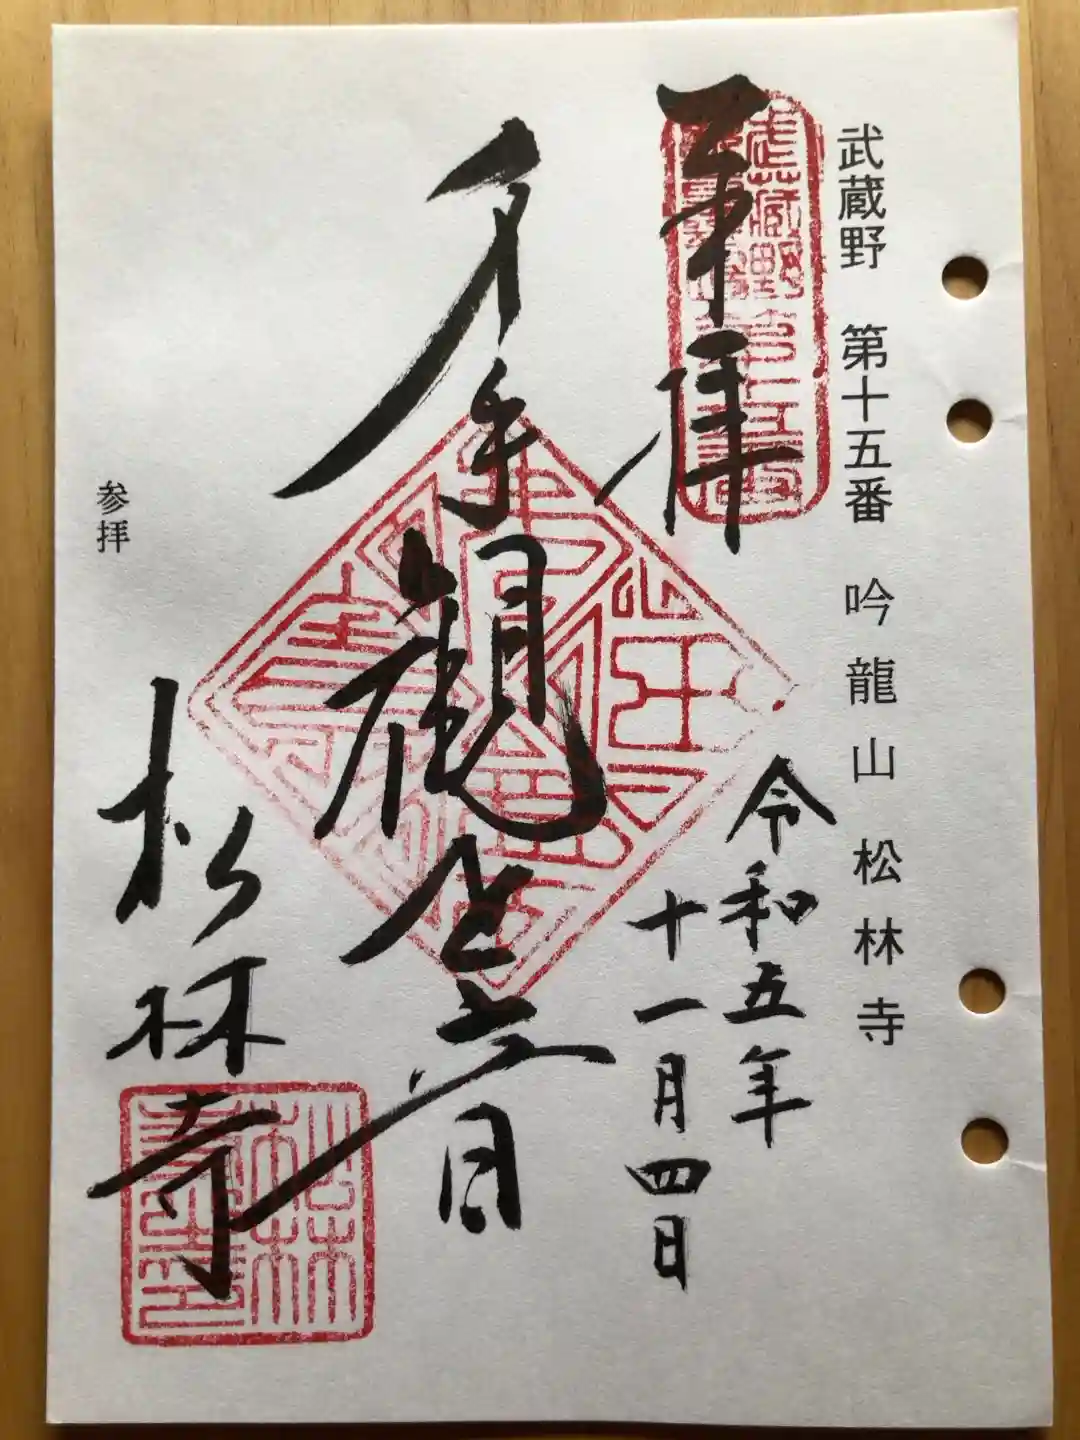 武蔵野 第十五番 吟龍山 松林寺
奉拝
武蔵野第十五番
令和五年
十一月四日
千手観世音
松林寺
参拝